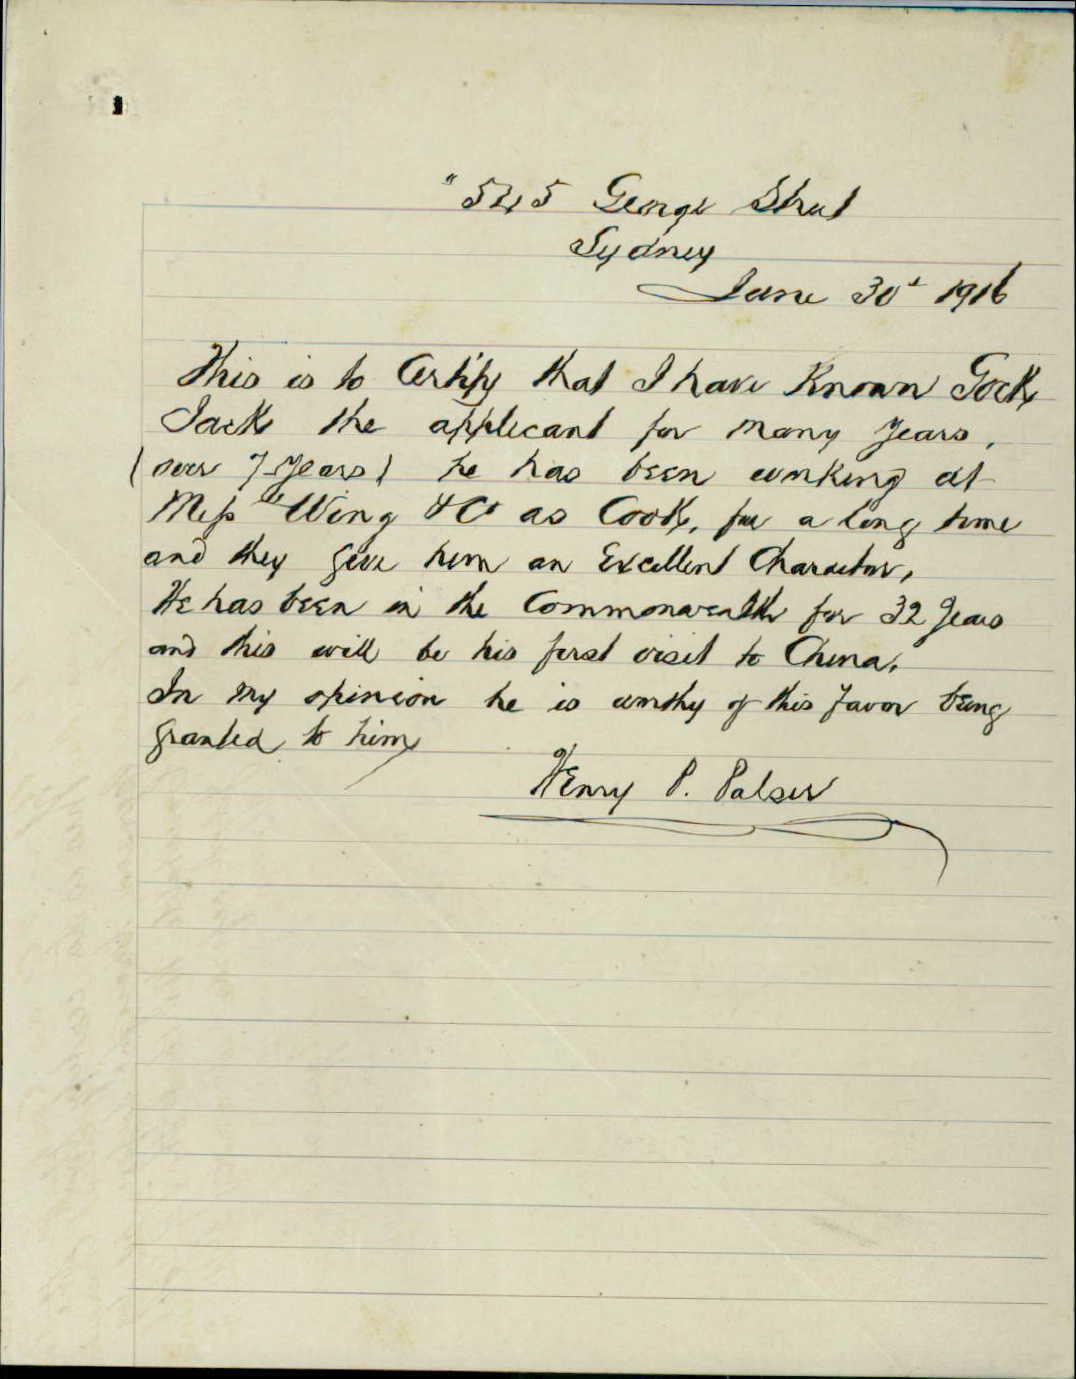 "545 George Street
Sydney
June 30th 1916
This is to Certify that I have Known Gock
Jack the applicant for many years,
(over 7 years) he has been working at
Mess Wing & Co as Cook, for a long time
and they give him an Excellent Character,
He has been in the Commonwealth for 32 years
and this will be his first visit to China.
In my opinion he is worthy of this favor being
granted to him
Henry P. Palser